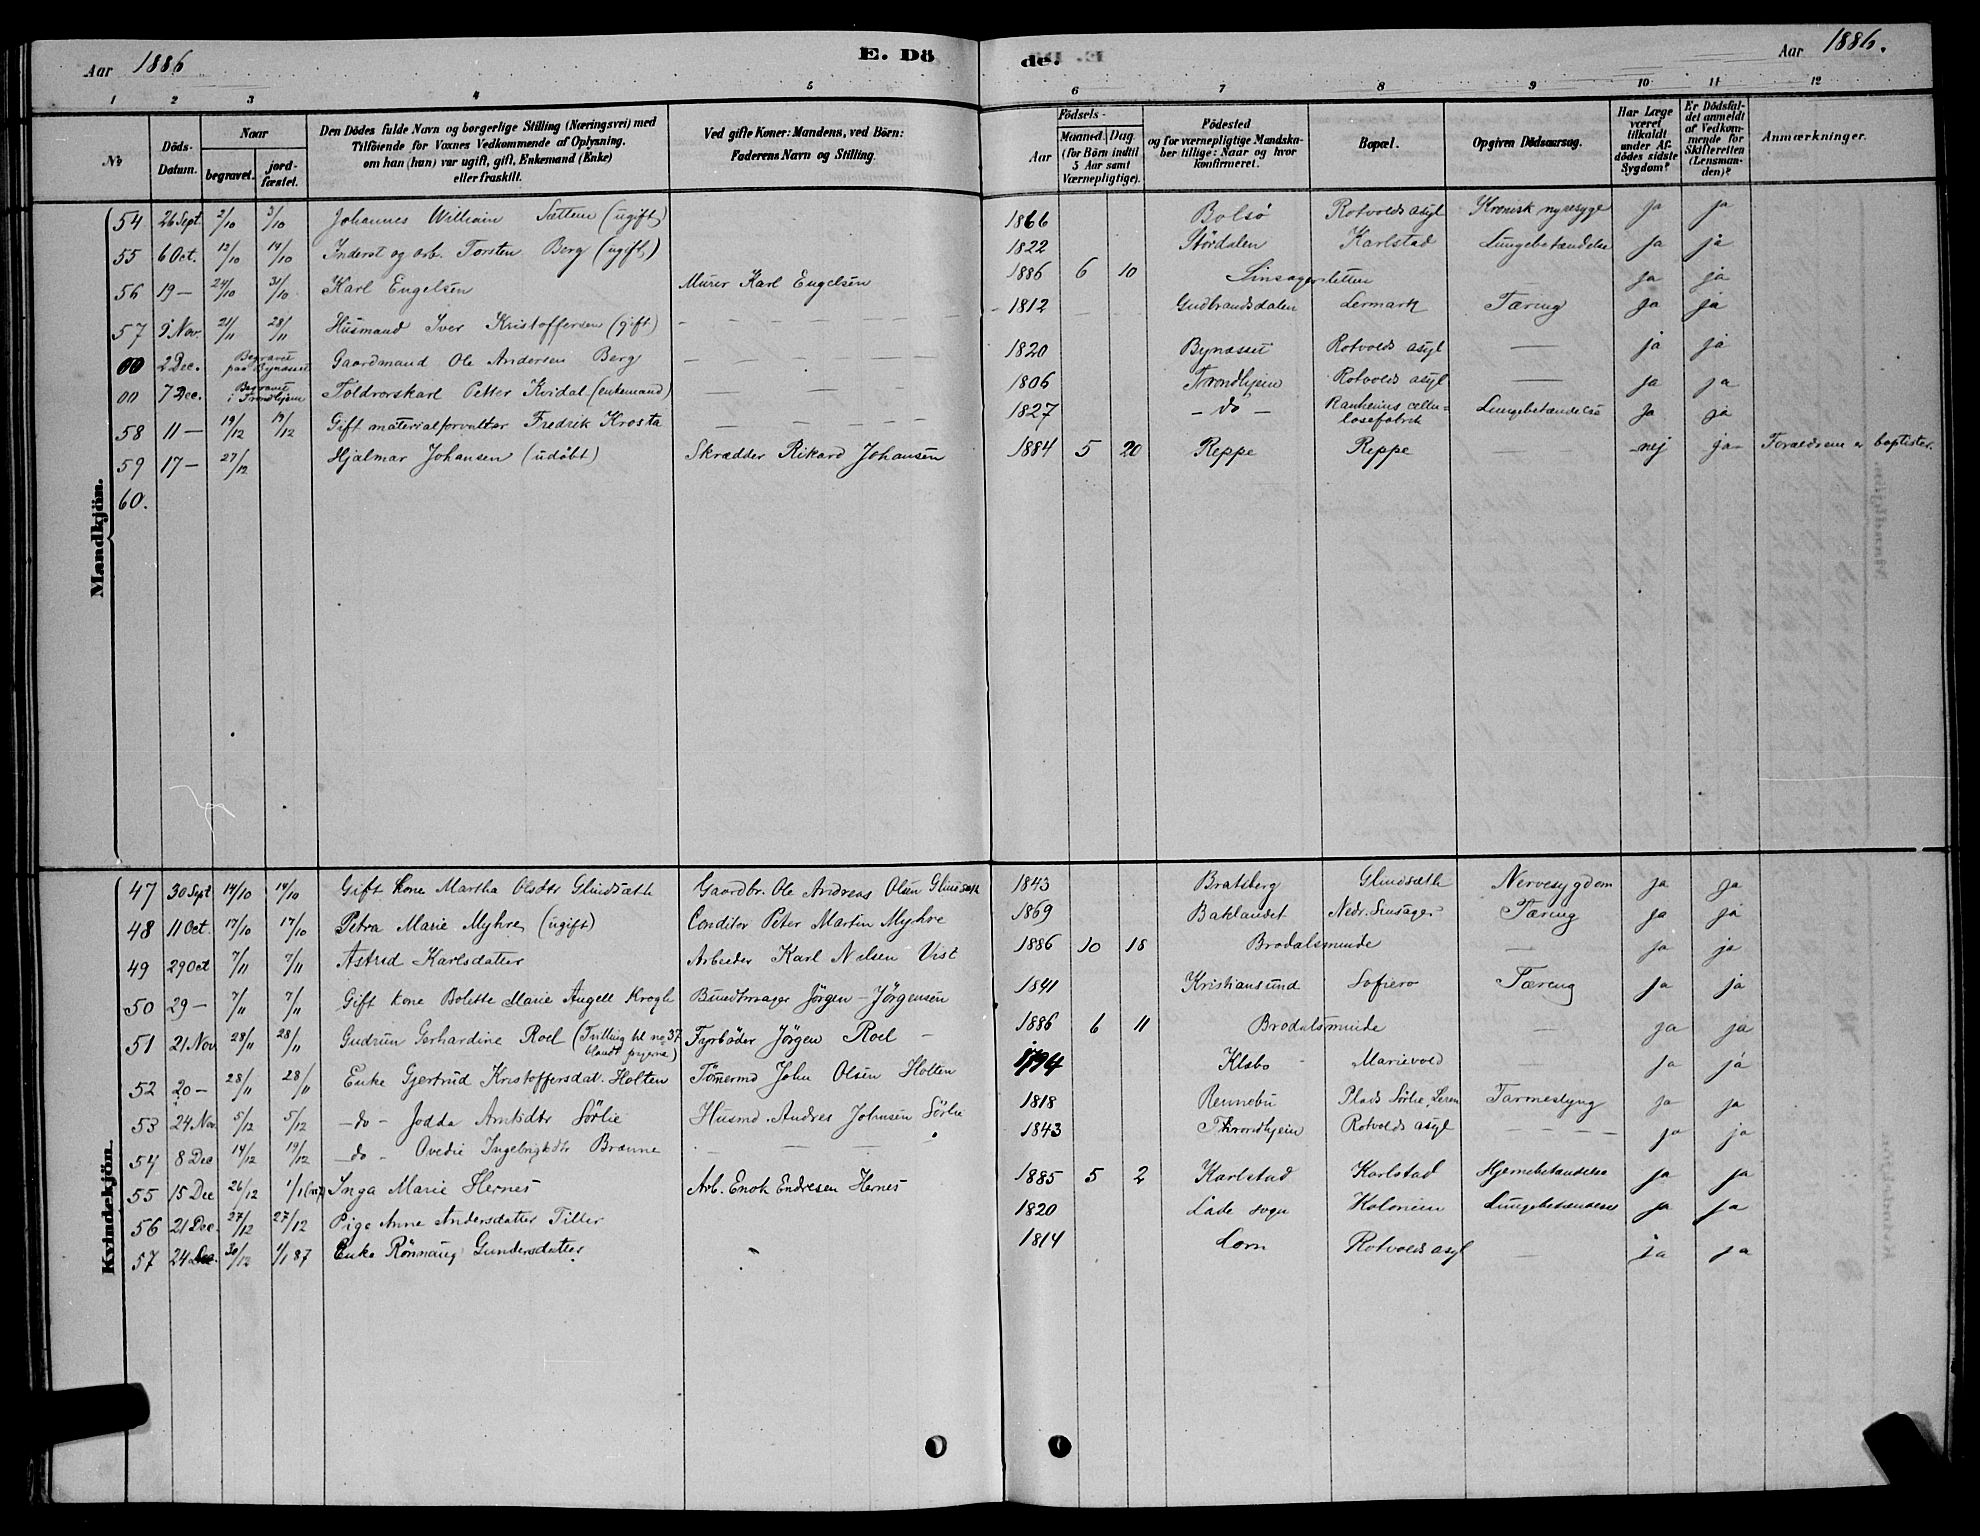 Aar 1886 E. Dö de. Aar 1886.
1 2 3 4 5 6 7 8 9 10 11 12
No
Döds-Datum.
Naar
begravet.
jord-fæstet.
Den Dödes fulde Navn og borgerlige Stilling (Næringsvei) med
Tilföiende for Voxnes Vedkommende af Oplysning,
om han (hun) var ugift, gift, Enkemand (Enke)
eller fraskilt.
Ved gifte Koner: Mandens, ved Börn:
Faderens Navn og Stilling.
Födsels-
Aar
Maaned. Dag.
(for Börn indtil
5 Aar samt
Værnepligtige).
Födested
og for værnepligtige Mandska-
ber tillige: Naar og hvor
konfirmeret.
Bopæl.
Opgiven Dödsaarsag.
Har Læge
været
tilkaldt
under Af-
dödes sidste
Sygdom?
Er Dödsfal-
det anmeldt
af Vedkom-
mende for
Skifteretten
(Lensman-
den)?
Anmærkninger.
Mandkjön.
54 26 Sept. 2/10 3/10 Johannes William Sættem (ugift) 1866 Bolsö Rotvolds asyl Kronisk nyresyge ja ja
55 6 Oct. 12/10 19/10 Inderst og arb. Torsten Berg (ugift) 1822 Stördalen Karlstad Lungebetændelse ja ja
56 19 — 24/10 31/10 Karl Engelsen Murer Karl Engelsen 1886 6 10 Linsagersletten ja ja
57 9 Nov. 21/11 28/11 Husmand Iver Kristoffersen (gift) — 1812 Gudbrandsdalen Lermark Tæring ja ja
00 2 Dec. Begravet paa Bynæsset Gaardmand Ole Andersen Berg — 1820 Bynæsset Rotvolds asyl — ja ja
00 7 Dec. Begravet i Trondhjem Toldrorskarl Petter Kvidal (enkemand) — 1806 Trondhjem Rotvolds asyl — ja ja
58 11 — 19/12 19/12 Gift materialforvalter Fredrik Krosta — 1827 — do — Ranheims cellu=
losefabrik Lungebetændelse ja ja
59 17 — 27/12 Hjalmar Johansen (udöbt) Skrædder Rikard Johansen 1884 5 20 Reppe Reppe — nej ja Foræeldrene er baptister.
60.
Kvindekjön.
47 30 Sept 14/10 14/10 Gift kone Martha Olsdtr Glindsæth Gaardbr. Ole Andreas Olsen Glindsæth 1843 Bratsberg Glindsæth Nervesygdom ja ja
48 11 Oct. 17/10 17/10 Petra Marie Myhre (ugift) Conditor Peter Martin Myhre 1869 Baklandet Nedr. Linsager Tæring ja ja
49 29 Oct 7/11 7/11 Astrid Karlsdatter Arbeider Karl Nilsen Vist 1886 10 18 Brodalsminde — ja ja
50 29 — 7/11 7/11 Gift kone Bolette Marie Angell Krogh Bundtmager Jörgen Jörgensen 1841 Kristiansund Sofiero Tæring ja ja
51 21 Nov 28/11 28/11 Gudrun Gerhardine Roel (Tvilling til no 37
blandt pigerne) Fyrböder Jörgen Roel — 1886 6 11 Brodalsminde — ja ja
52 20 — 28/11 28/11 Enke Gjertrud Kristoffersdat. Holten Tömermd John Olsen Holten 1794 Klæbo Marievold — ja ja
53 24 Nov. 5/12 5/12 — do — Jodda Arntsdtr Sörlie Husmd. Andres Johnsen Sörlie 1818 Rennebu Plads Sörlie, Leren Tarmeslyng ja ja
54 8 Dec 14/12 19/12 — do — Ovedie Ingebrigtsdtr Brænne — 1843 Throndhjem Rotvolds asyl — ja ja
55 15 Dec 26/12 1/1 Inga Marie Hernes Arb. Enok Endresen Hernes 1885 5 2 Karlstad Karlstad Hjernebetændelse ja ja
56 21 Dec. 27/12 27/12 Pige Anne Andersdatter Tiller 1820 Lade sogn Kolonien Lungebetændelse ja ja
57 24 Dec. 30/12 1/1 87 Enke Rönnaug Gundersdatter 1814 Lom Rotvolds asyl — ja ja